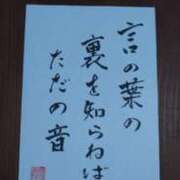 言の葉の
裏を知らねば
ただの音